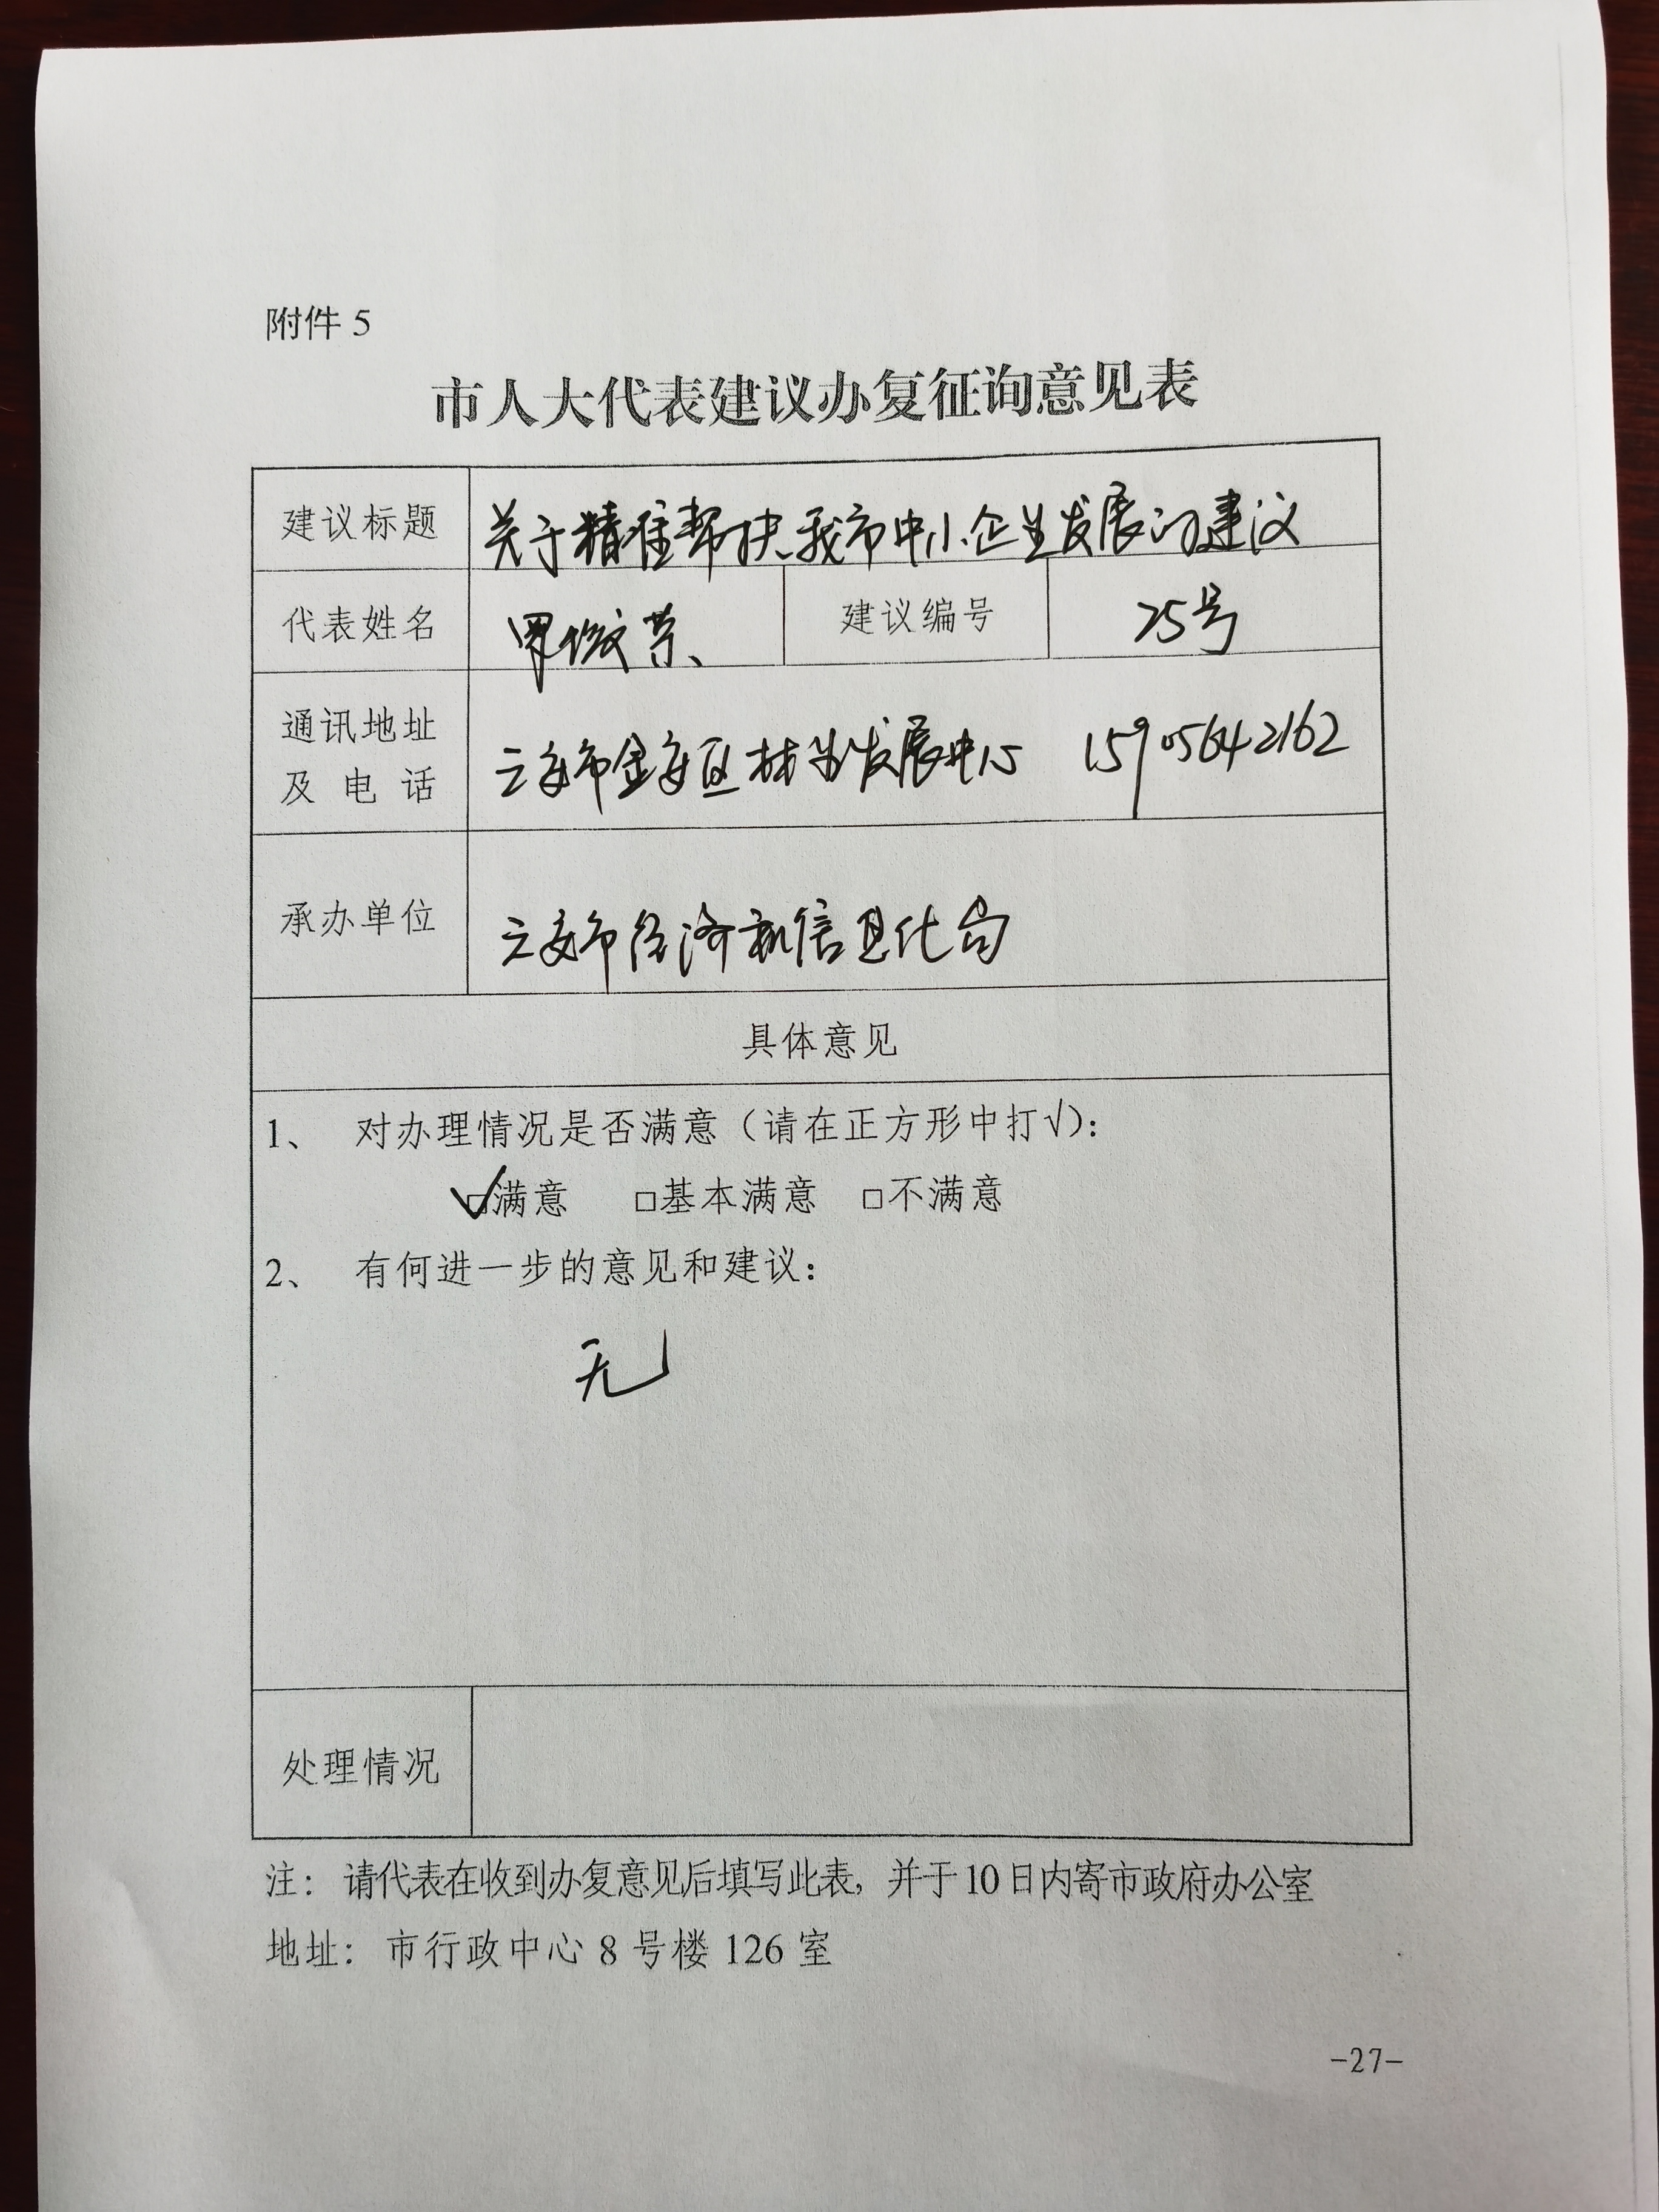 附件 5
市人大代表建议办复征询意见表
建议标题 关于精准帮扶我市中小企业发展的建议
代表姓名 建议编号 25号
通讯地址
及电话 六安市金安区林业发展中心 15905642162
承办单位 六安市经济和信息化局
具体意见
1、 对办理情况是否满意（请在正方形中打√）：
☑满意 □基本满意 □不满意
2、 有何进一步的意见和建议：
无
处理情况
注： 请代表在收到办复意见后填写此表，并于 10 日内寄市政府办公室
地址： 市行政中心 8 号楼 126 室
-27-